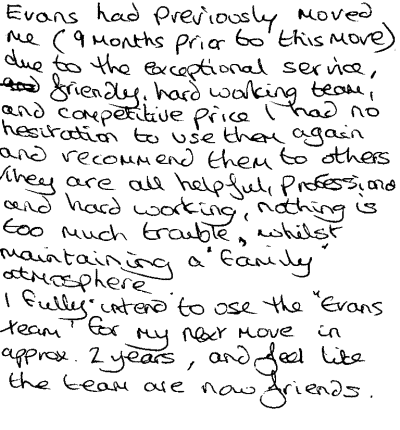 Evans had previously moved
me (9 months prior to this move)
due to the exceptional service,
friendly, hard working team,
and competitive price I had no
hesitation to use them again
and recommend them to others
They are all helpful, professional
and hard working, nothing is
too much trouble, whilst
maintaining a "family"
atmosphere
I fully intend to use the "Evans
team" for my next move in
approx. 2 years, and feel like
the team are now friends.